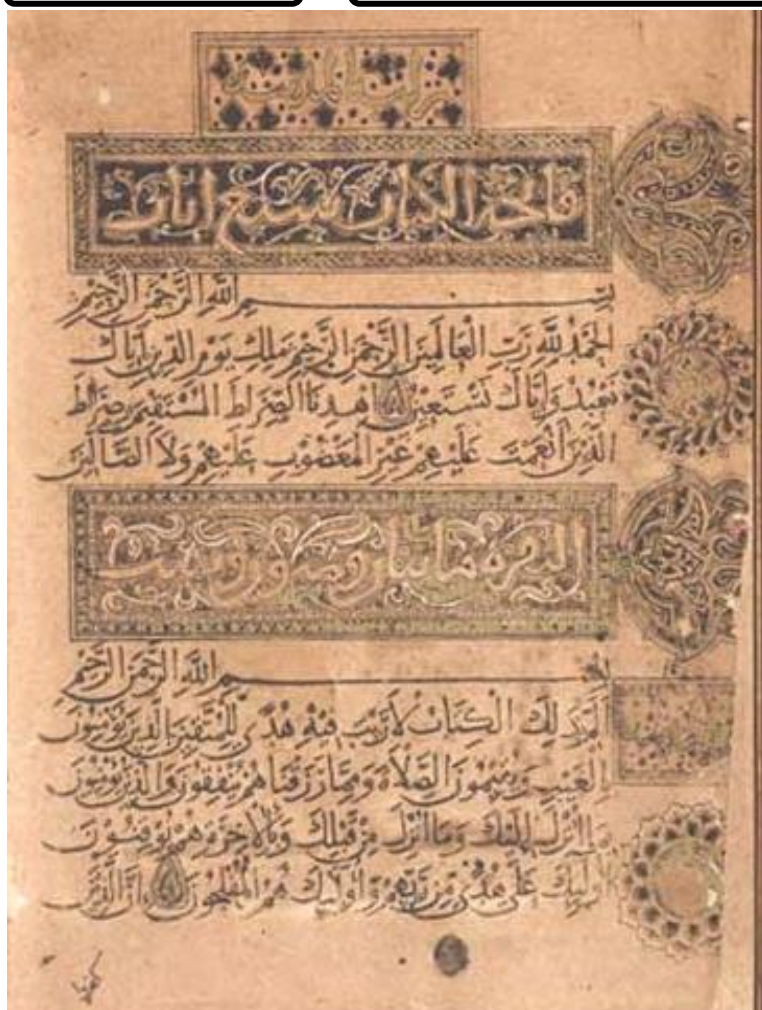 فاتحة الكتاب سبع ايات
بسم الله الرَّحْمَنِ الرَّحِيمِ
الحَمْدُ لِلَّهِ رَبِّ الْعَالَمِينَ الرَّحْمَنِ الرَّحِيمِ مَلِكِ يَوْمِ الدِّينِ إِيَّاكَ
نَعْبُدُ وَإِيَّاكَ نَسْتَعِينُ اهْدِنَا الصِّرَاطَ الْمُسْتَقِيمَ صِرَاطَ
الَّذِينَ أَنْعَمْتَ عَلَيْهِمْ غَيْرِ الْمَغْضُوبِ عَلَيْهِمْ وَلَا الضَّالِّينَ
البقرة مايتان وست
بسم الله الرَّحْمَنِ الرَّحِيمِ
الم ذَلِكَ الْكِتَابُ لَا رَيْبَ فِيهِ هُدًى لِلْمُتَّقِينَ الَّذِينَ يُؤْمِنُونَ
بِالْغَيْبِ وَيُقِيمُونَ الصَّلَاةَ وَمِمَّا رَزَقْنَاهُمْ يُنْفِقُونَ وَالَّذِينَ يُؤْمِنُونَ
بِمَا أُنْزِلَ إِلَيْكَ وَمَا أُنْزِلَ مِنْ قَبْلِكَ وَبِالْآخِرَةِ هُمْ يُوقِنُونَ
أُولَئِكَ عَلَى هُدًى مِنْ رَبِّهِمْ وَأُولَئِكَ هُمُ الْمُفْلِحُونَ إِنَّ الَّذِينَ